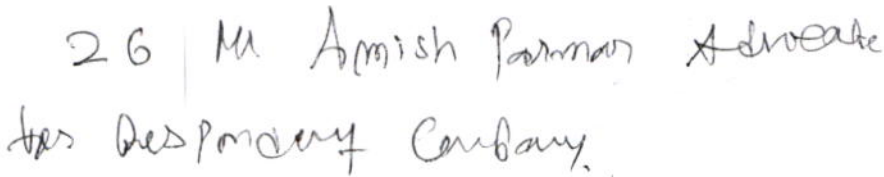 26 Mr Amish Parmar Advocate
for Respondent Company.